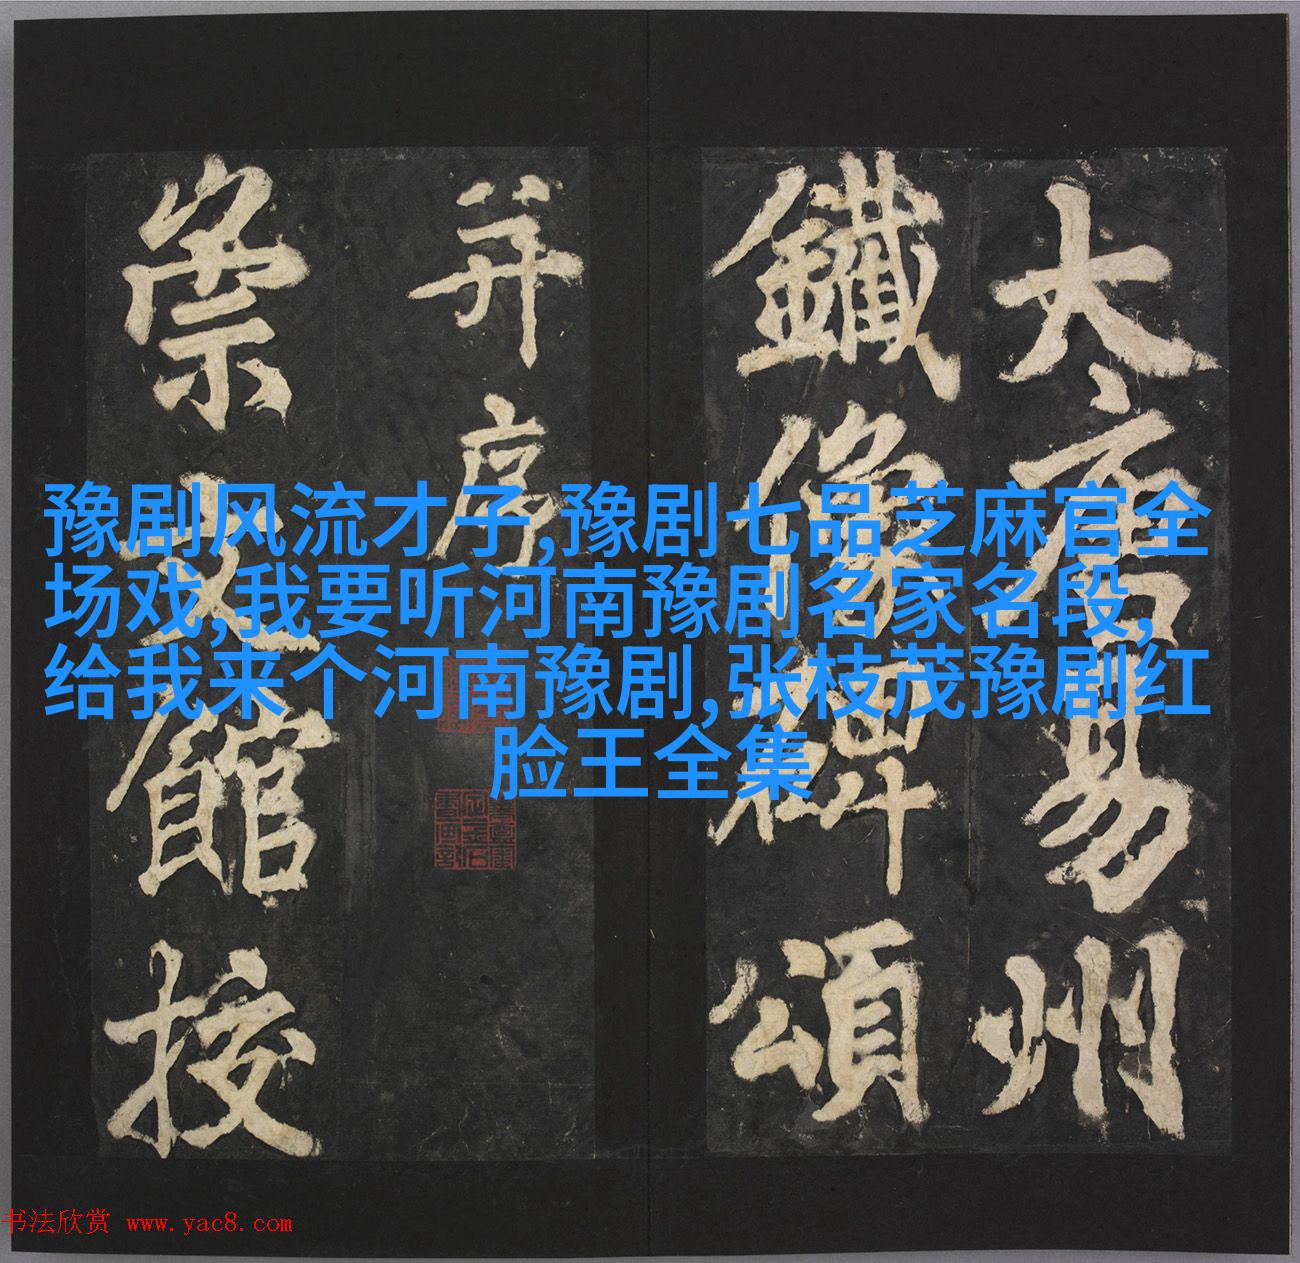 大唐易州
鐵像碑頌
并序
崇文館校
豫剧风流才子,豫剧七品芝麻官全
场戏,我要听河南豫剧名家名段,
给我来个河南豫剧,张枝茂豫剧红
脸王全集
书法欣赏 www.yac8.com